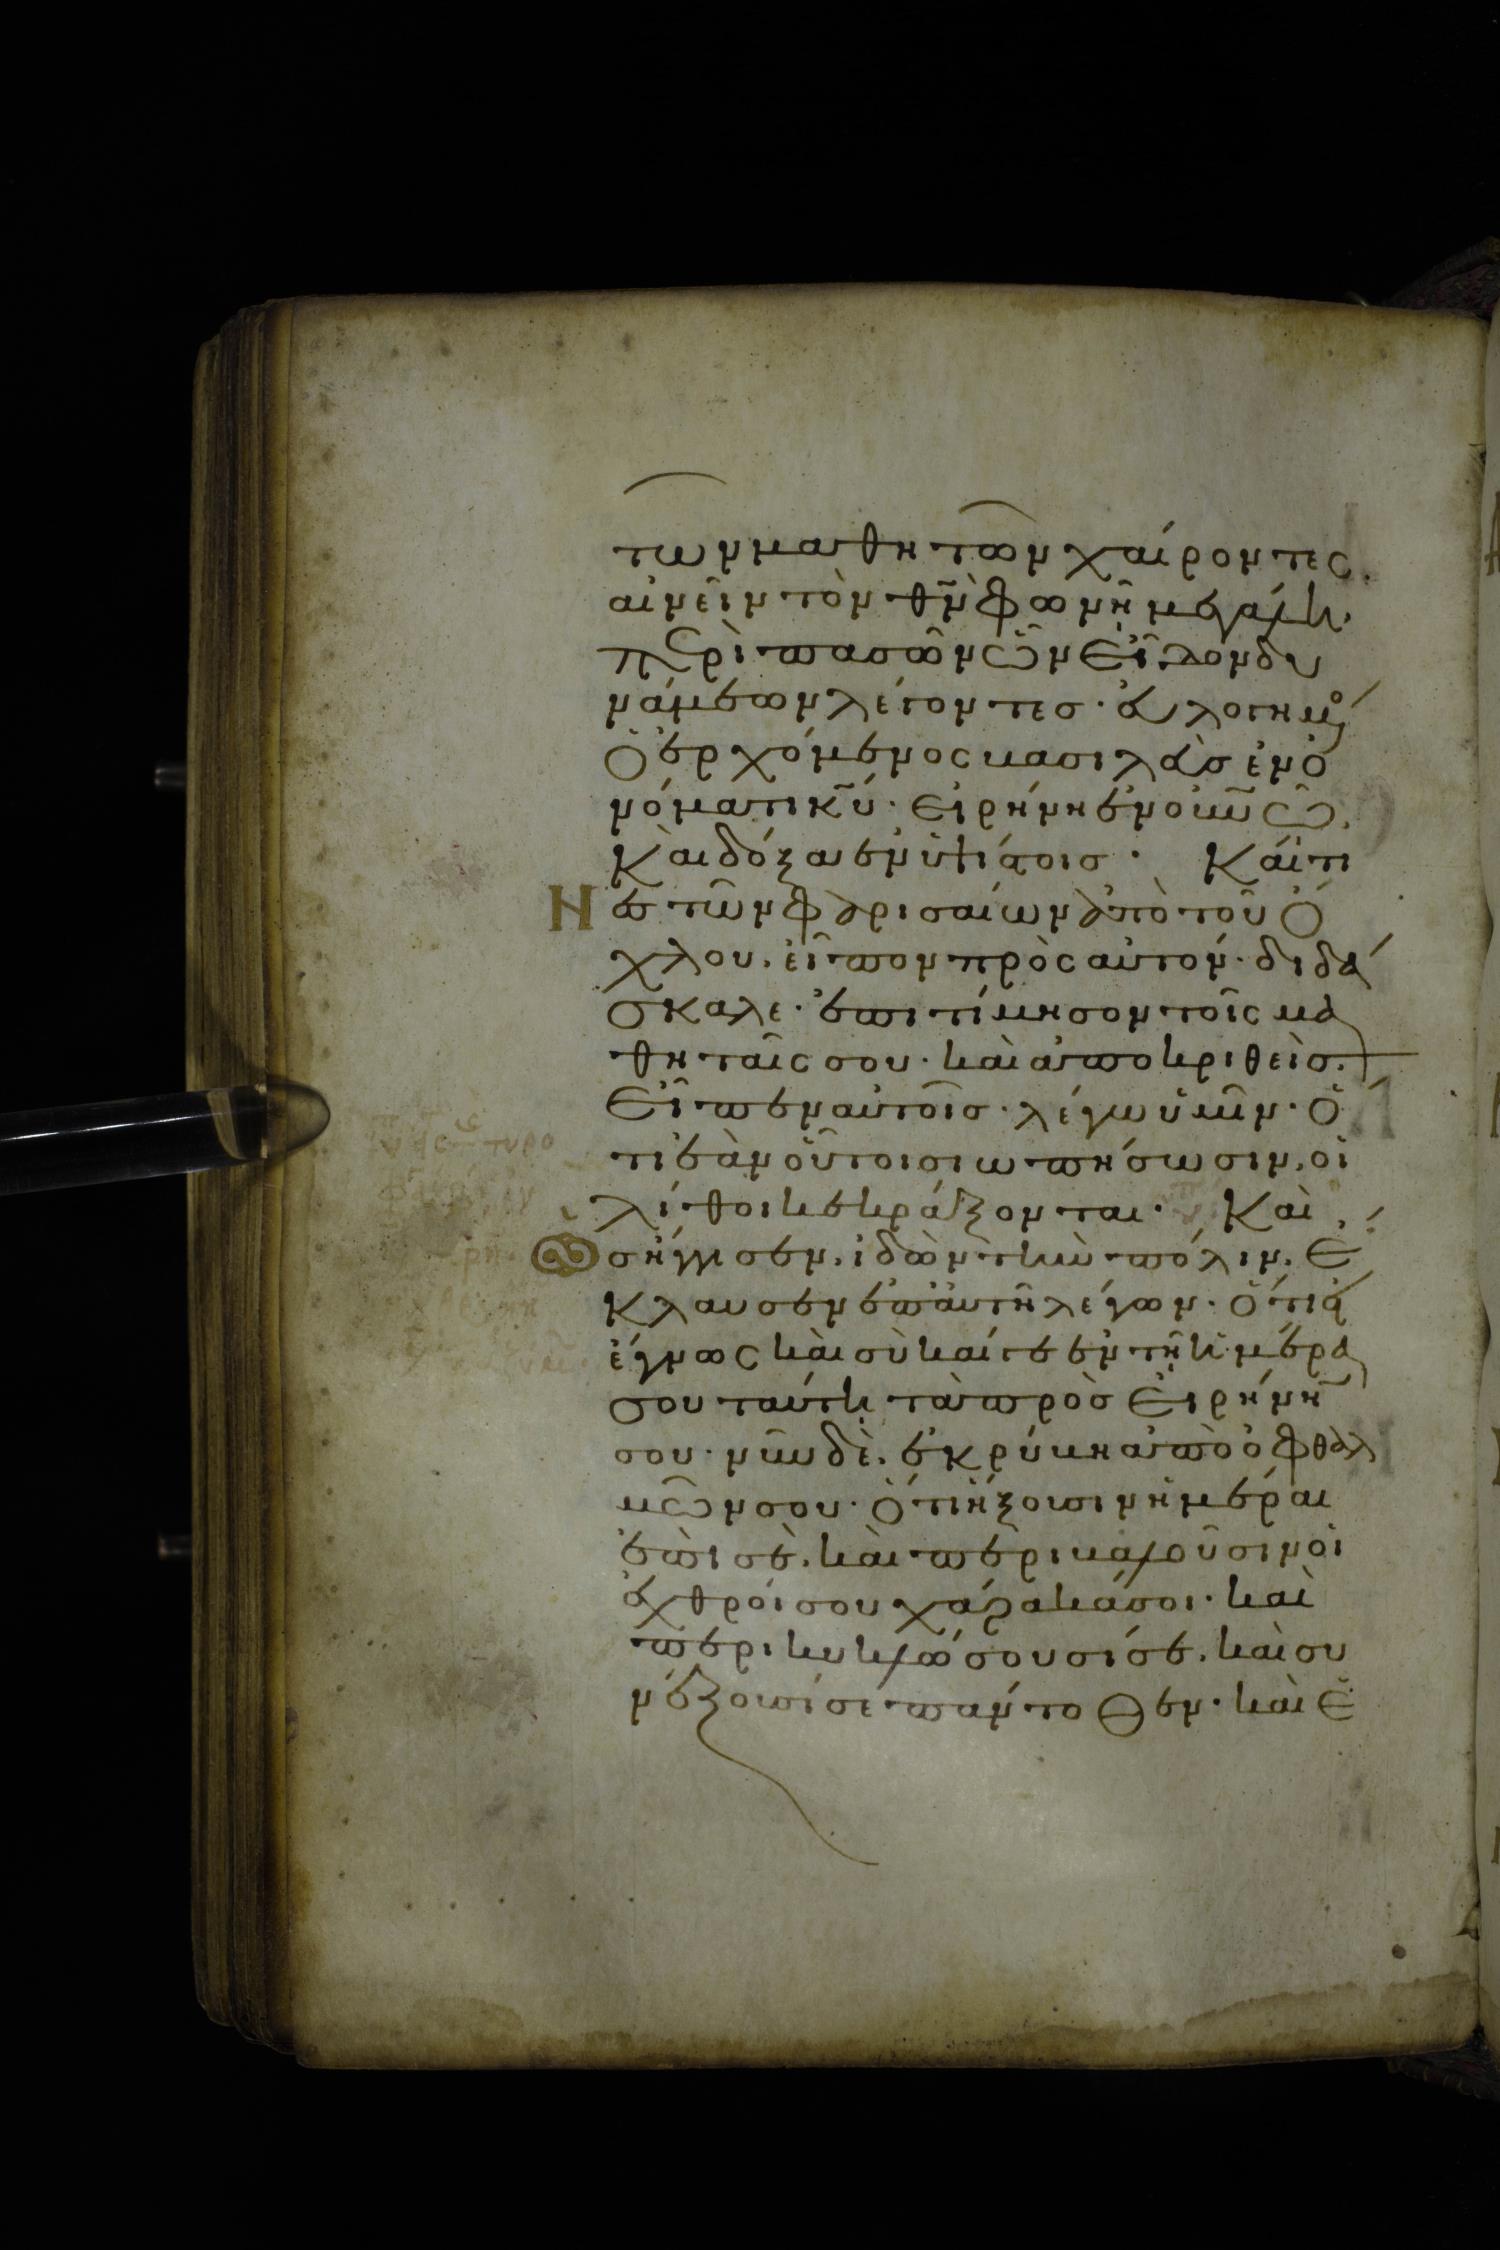 των μαθητῶν χαίροντες.
αἰνεῖν τὸν θν φωνῆ μεγάλη.
περὶ πασῶν ὧν εἶδον δυ
νάμεων λέγοντες· εὐλογημενο
ὁ ἐρχόμενος βασιλεὺσ ἐν ὀ
νόματι κυ· εἰρήνη ἐν οὐνω.
Καὶ δόξα ἐν ὑψίστοισ· Καί τι
Νεσ τῶν φαρισαίων ἀπὸ τοῦ ὄ
χλου. εἶπον πρὸς αὐτόν· διδά
σκαλε· ἐπιτίμησον τοῖς μα
θηταῖς σου· καὶ ἀποκριθεὶσ.
εἶπεν αὐτοῖσ· λέγω ὑμῖν· ὅ
τι ἐὰν οὗτοι σιωπήσωσιν. οἱ
λίθοι κεκράξονται· Καὶ
Ὡσ ἤγγισεν. ἰδὼν τὴν πόλιν. ἔ
κλαυσεν ἐπ αὐτῆ λέγων· ὅτι εἰ
ἔγνως καὶ σὺ καί γε ἐν τῆ ἡμέρα
σου ταύτη τὰ πρὸσ εἰρήνη
σου· νῦν δὲ. ἐκρύβη ἀπὸ ὀφθαλ
μῶν σου· ὅτι ἥξουσιν ἡμέραι
ἐπὶ σὲ. καὶ περιβαλοῦσιν οἱ
ἐχθροί σου χάρακά σοι· καὶ
περικυκλώσουσί σε. καὶ συ
νέξουσί σε πάντοθεν· καὶ ἐ